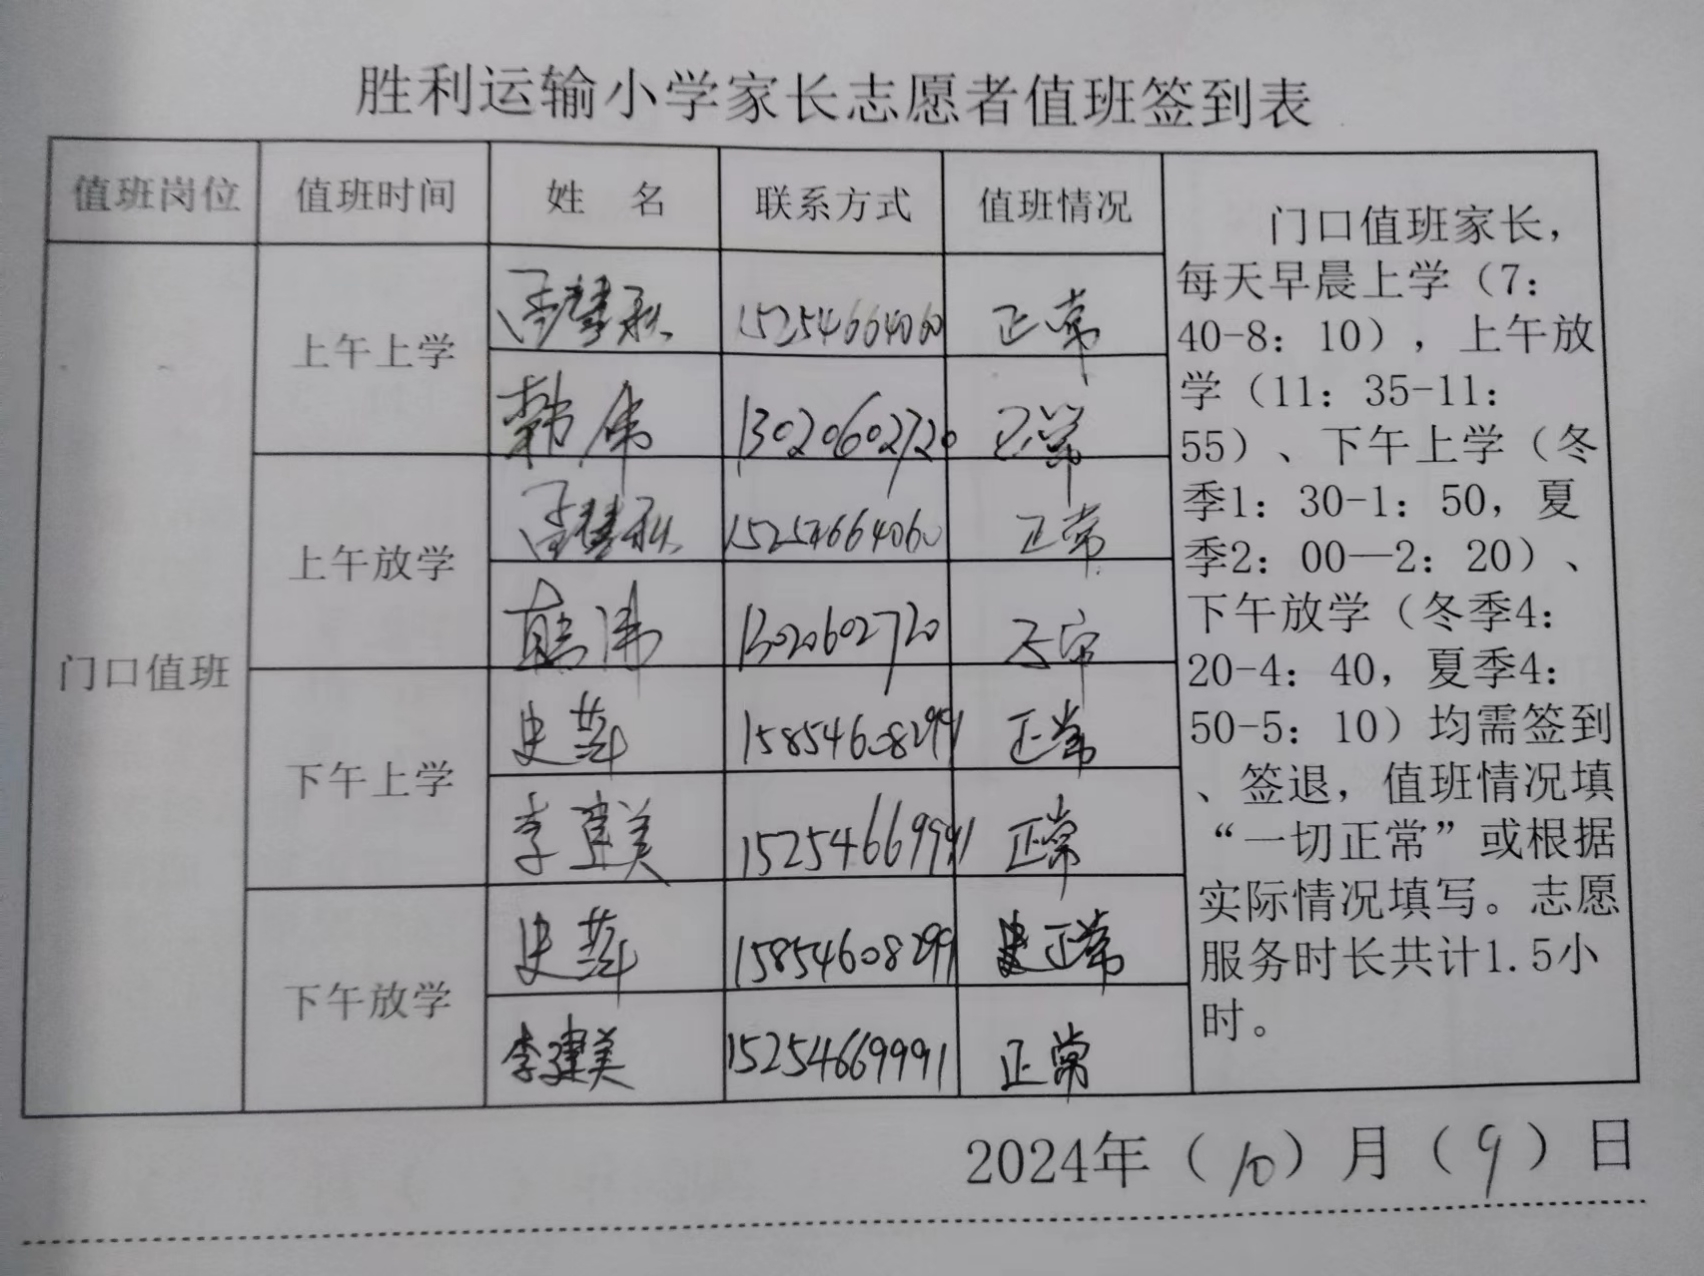 胜利运输小学家长志愿者值班签到表
值班岗位 值班时间 姓 名 联系方式 值班情况
门口值班
上午上学
15254664060 正常
韩伟 13020602720 正常
上午放学
15254664060 正常
韩伟 13020602720
下午上学
史萍 15854608299 正常
李建美 15254669991 正常
下午放学
史萍 15854608299 正常
李建美 15254669991 正常
门口值班家长，
每天早晨上学（7：
40-8：10），上午放
学（11：35-11：
55）、下午上学（冬
季1：30-1：50，夏
季2：00—2：20）、
下午放学（冬季4：
20-4：40，夏季4：
50-5：10）均需签到
、签退，值班情况填
“一切正常”或根据
实际情况填写。志愿
服务时长共计1.5小
时。
2024年（10）月（9）日